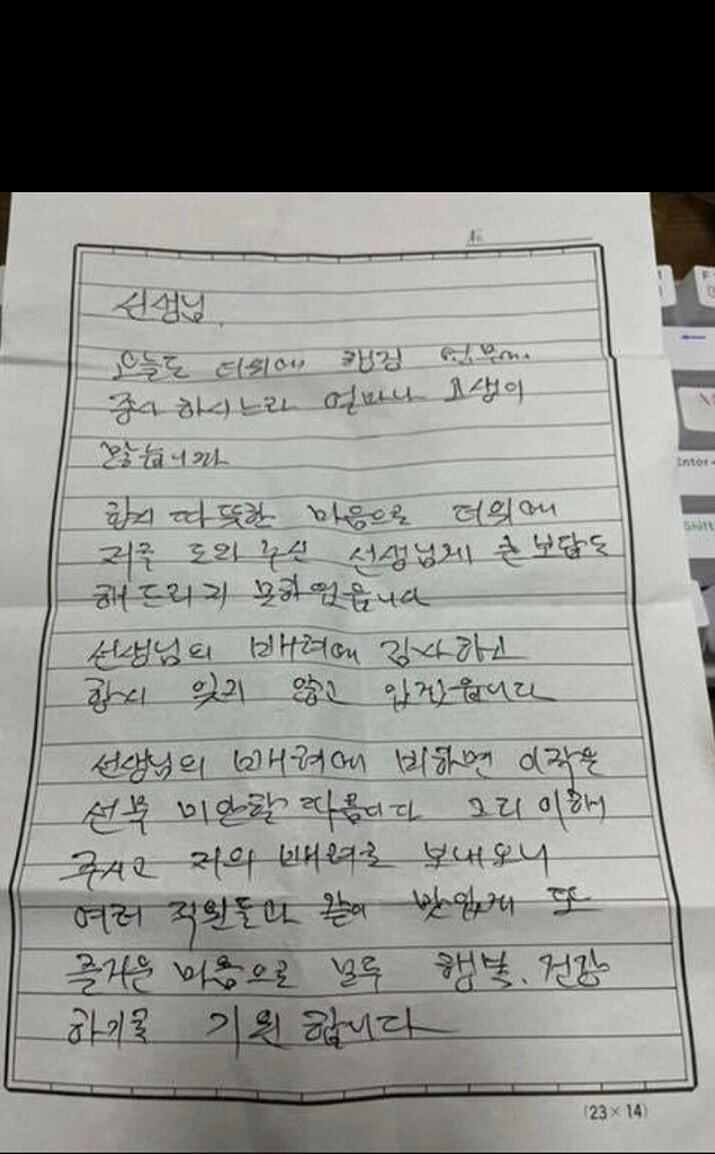 No.
선생님.
오늘도 더위에 행정 업무에
종사 하시느라 얼마나 고생이
많습니까
항시 따뜻한 마음으로 더위에
저를 도와 주신 선생님게 큰 보답도
해드리지 못하였읍니다
선생님의 배려에 감사하고
항시 잊지 않고 있겄읍니다
선생님의 배려에 비하면 이작은
선무 미안할 따름니다 그리 이해
주시고 저의 배려를 보내오니
여러 직원들과 같이 맛있게 또
즐거운 마음으로 모두 행복. 건강
하기를 기원 합니다
(23×14)
Enter
Shift